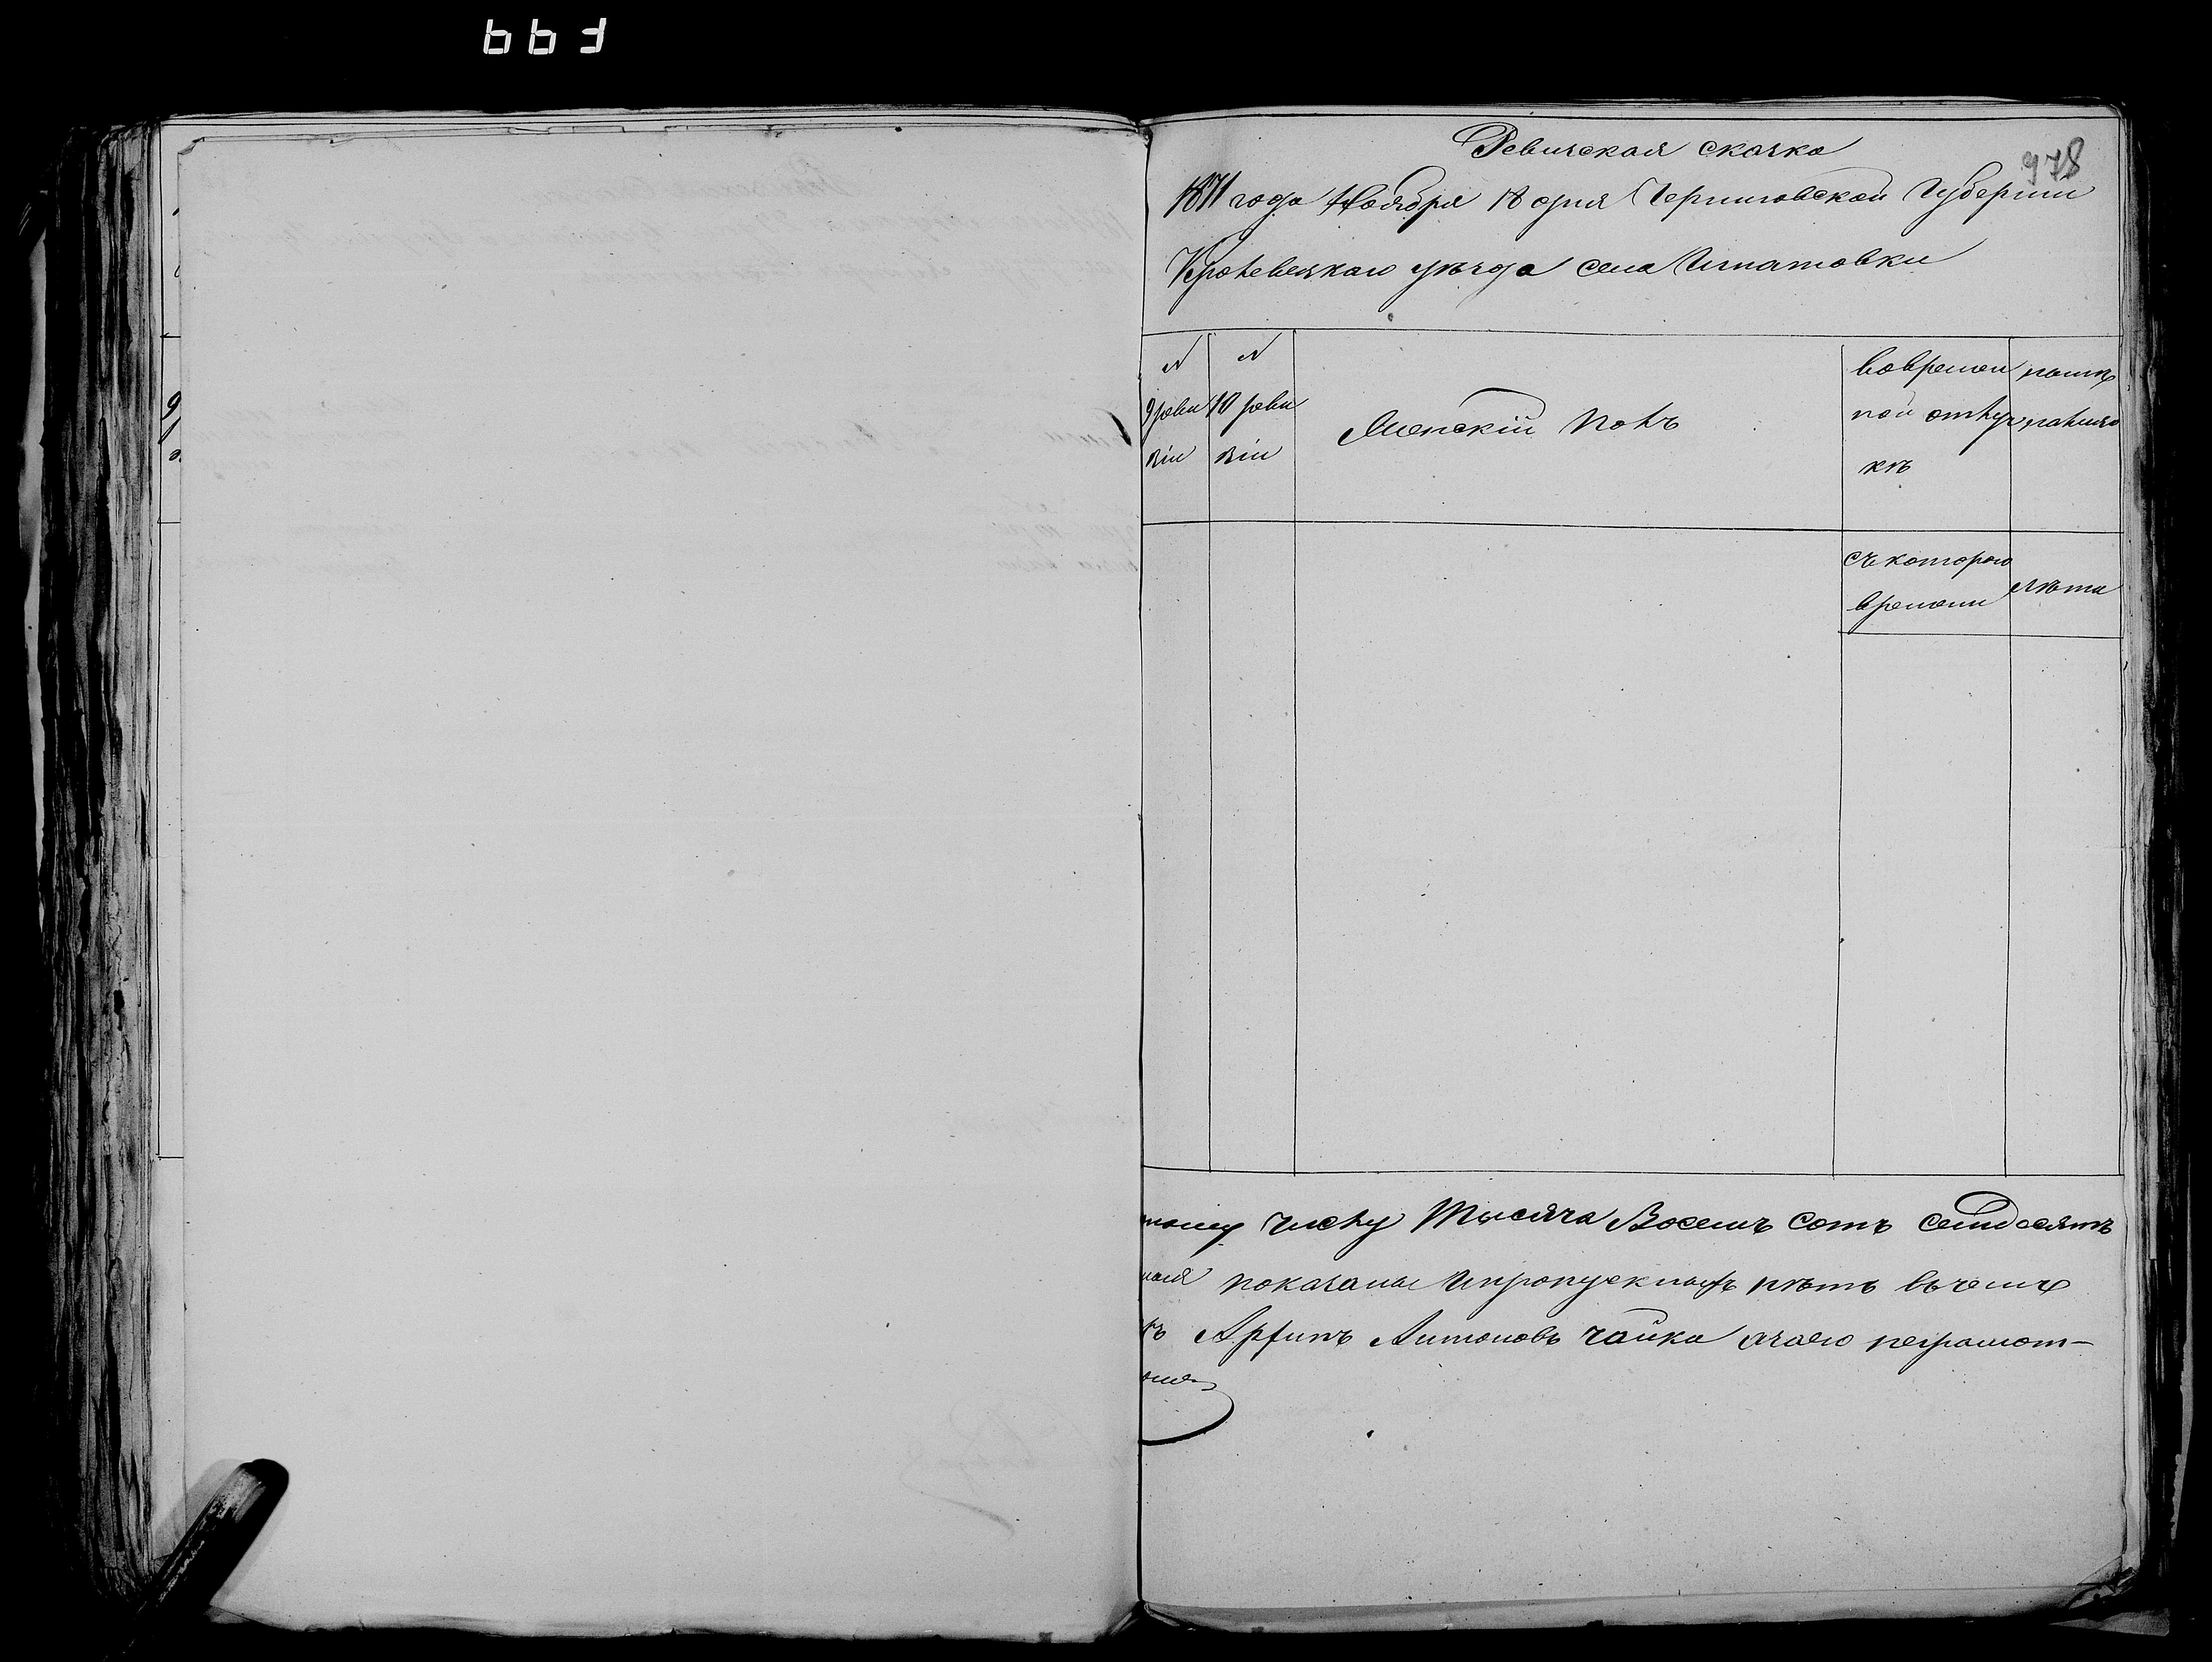 978
Ревизская сказка
1871 года Ноября 18 дня Черниговской Губернии
Кролевецкаго уѣзда села Игнатовки
N
9 реви
зіи
N
10 реви
зіи
Женскій полъ
вовремен
ной отлуч
кѣ
съ котораго
времени
лѣта
тому числу Тысяча Восемь Сотъ Семдесятъ
показана Ипропускныхъ нѣтъ вчемъ
Антоновъ чайка азаего неграмот-